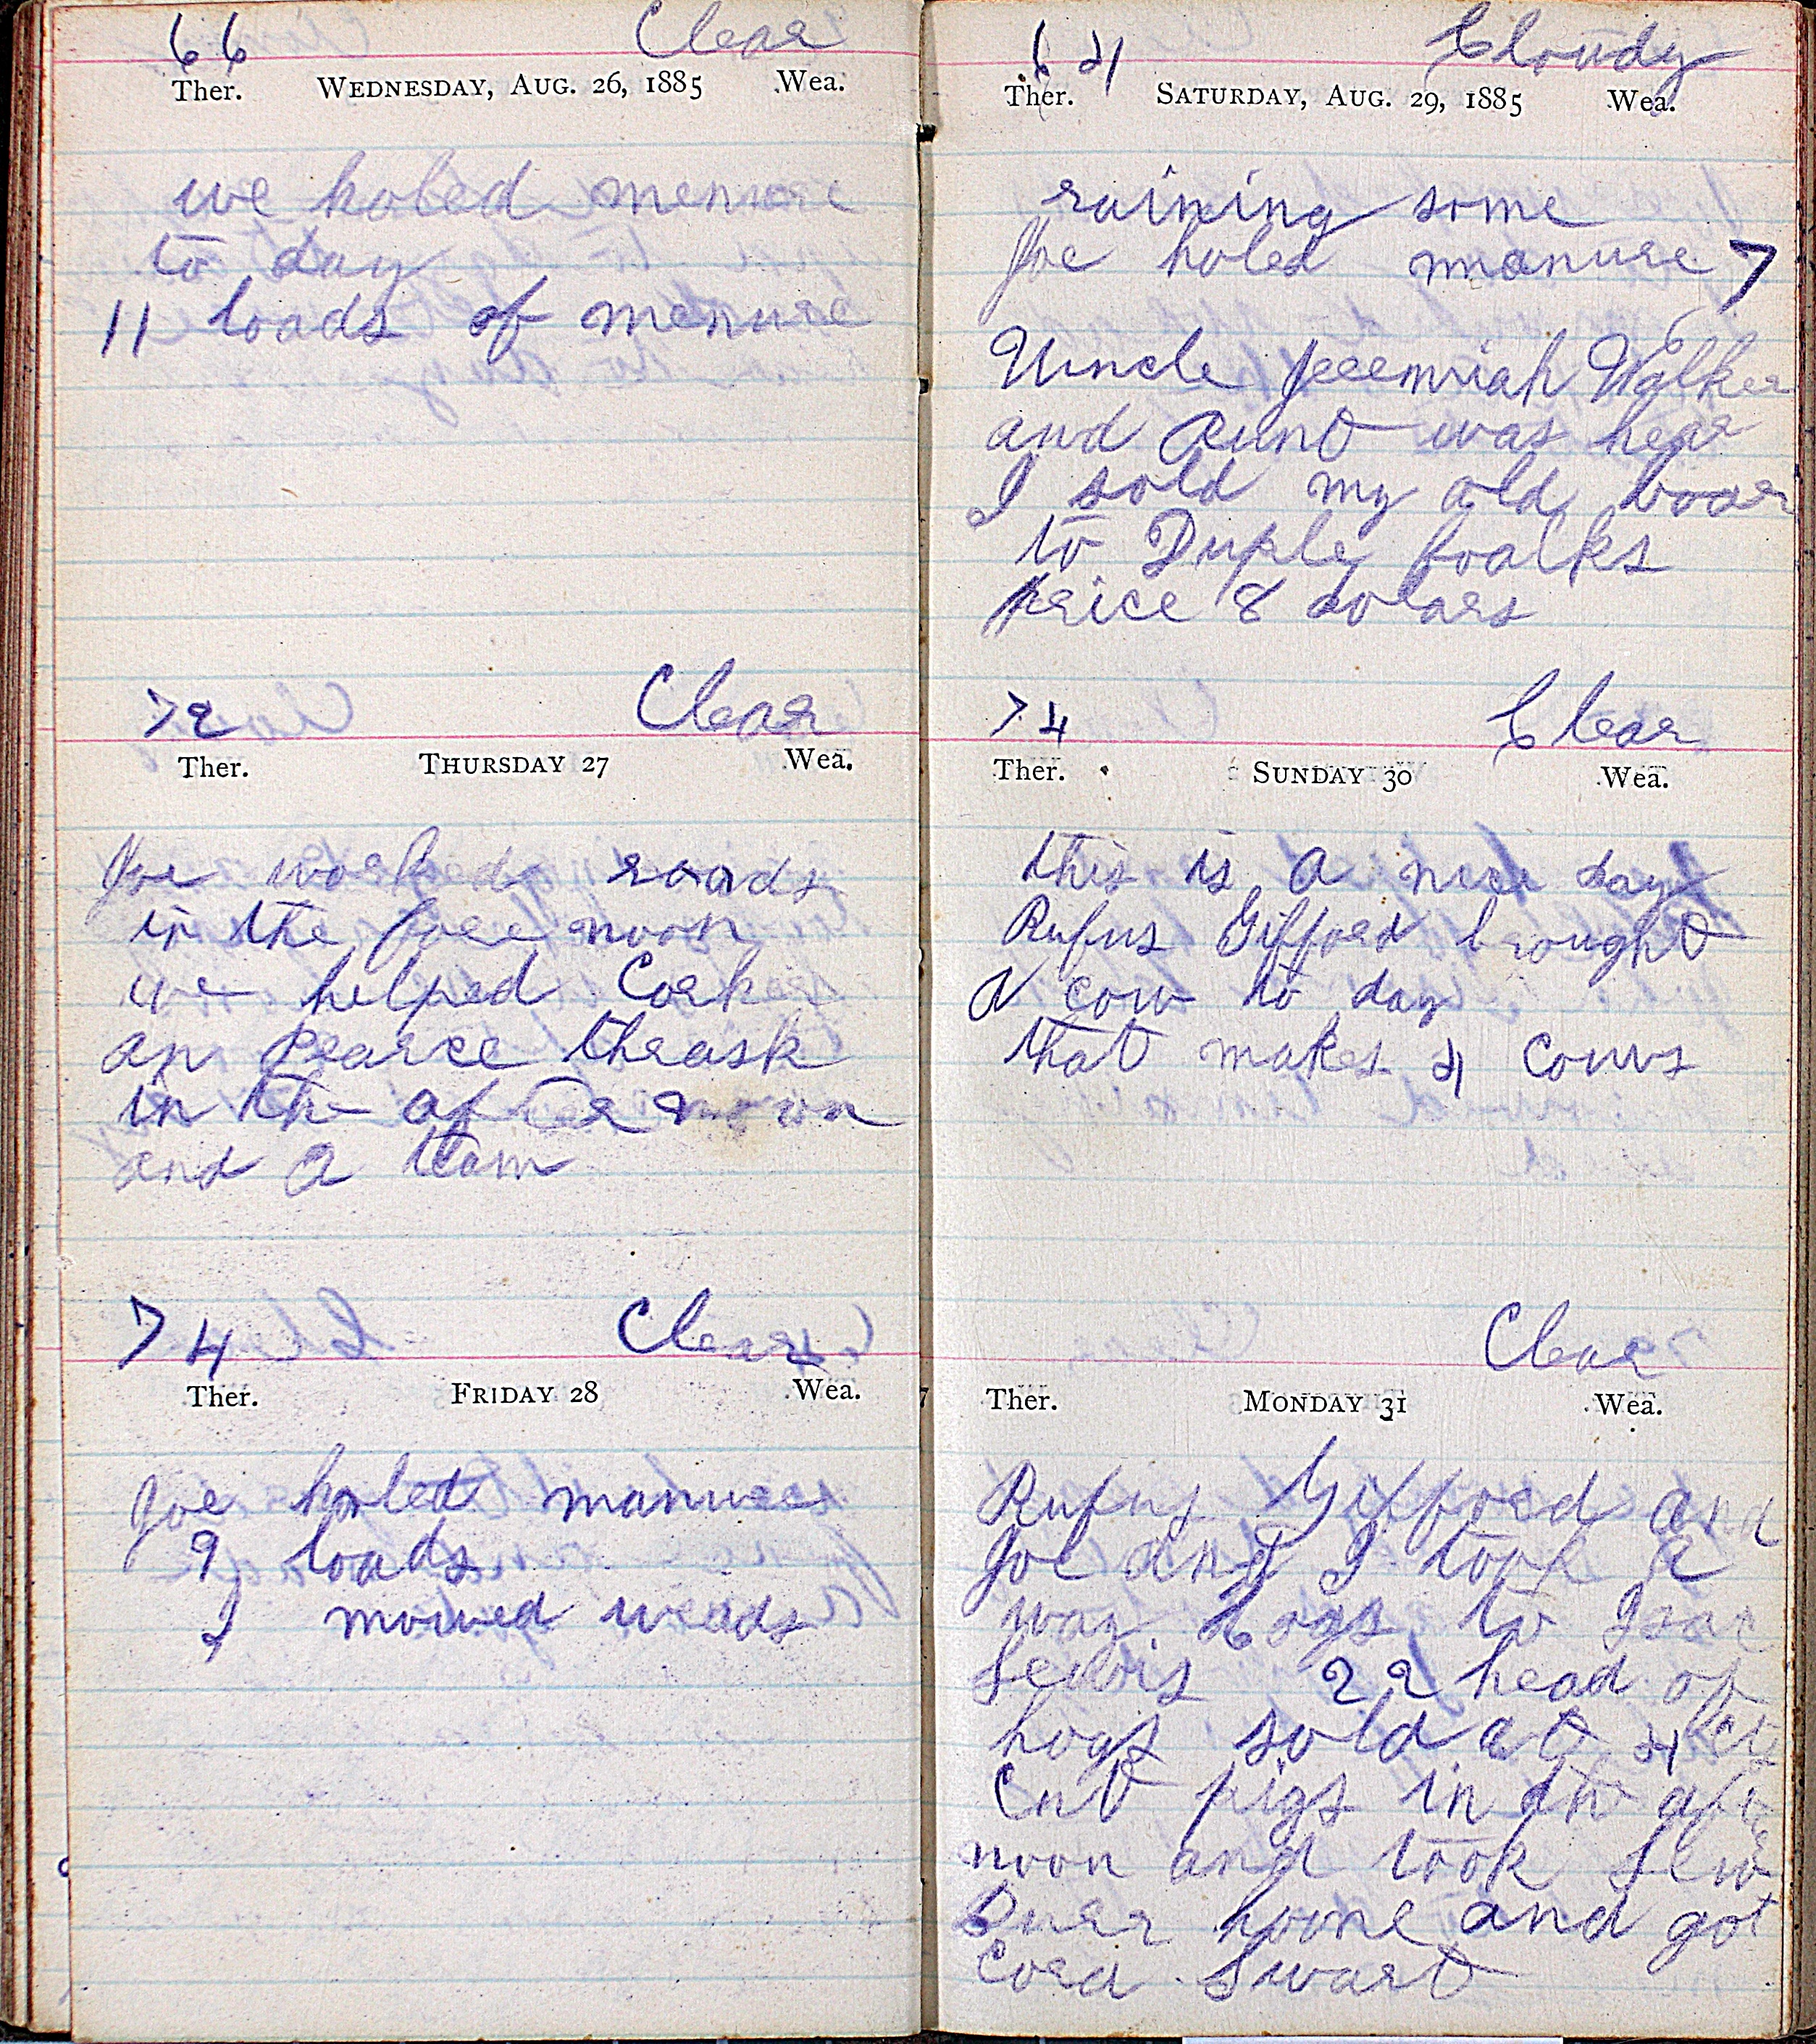 66 Clear
Ther. WEDNESDAY, AUG. 26, 1885 Wea.
we holed menure
to day
11 loads of menure
72 Clear
Ther. THURSDAY 27 Wea.
Joe worked roads
in the fore noon
we helped Cork
an Pearce thrask
in the after noon
and a team
74 Clear
Ther. FRIDAY 28 Wea.
Joe holed manure
9 loads
I mowed weads
64 Cloudy
Ther. SATURDAY, AUG. 29, 1885 Wea.
raining some
Joe holed manure 7
Uncle Jeremiah Walker
and Aunt was hear
I sold my old boar
to Duple foalks
price 8 dolars
74 Clear
Ther. SUNDAY 30 Wea.
this is a nice day
Rufus Gifford brought
a cow to day
that makes 4 cows
Clear
Ther. MONDAY 31 Wea.
Rufus Gifford and
Joe and I took a
way hogs to Isac
Lewis 22 head of
hogs sold at 4 cts
Cut pigs in the after
noon and took Lew
Durr home and got
Cord Swart